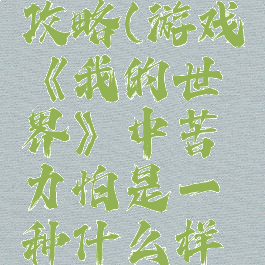 攻略(游戏
《我的世
界》中苦
力怕是一
种什么样